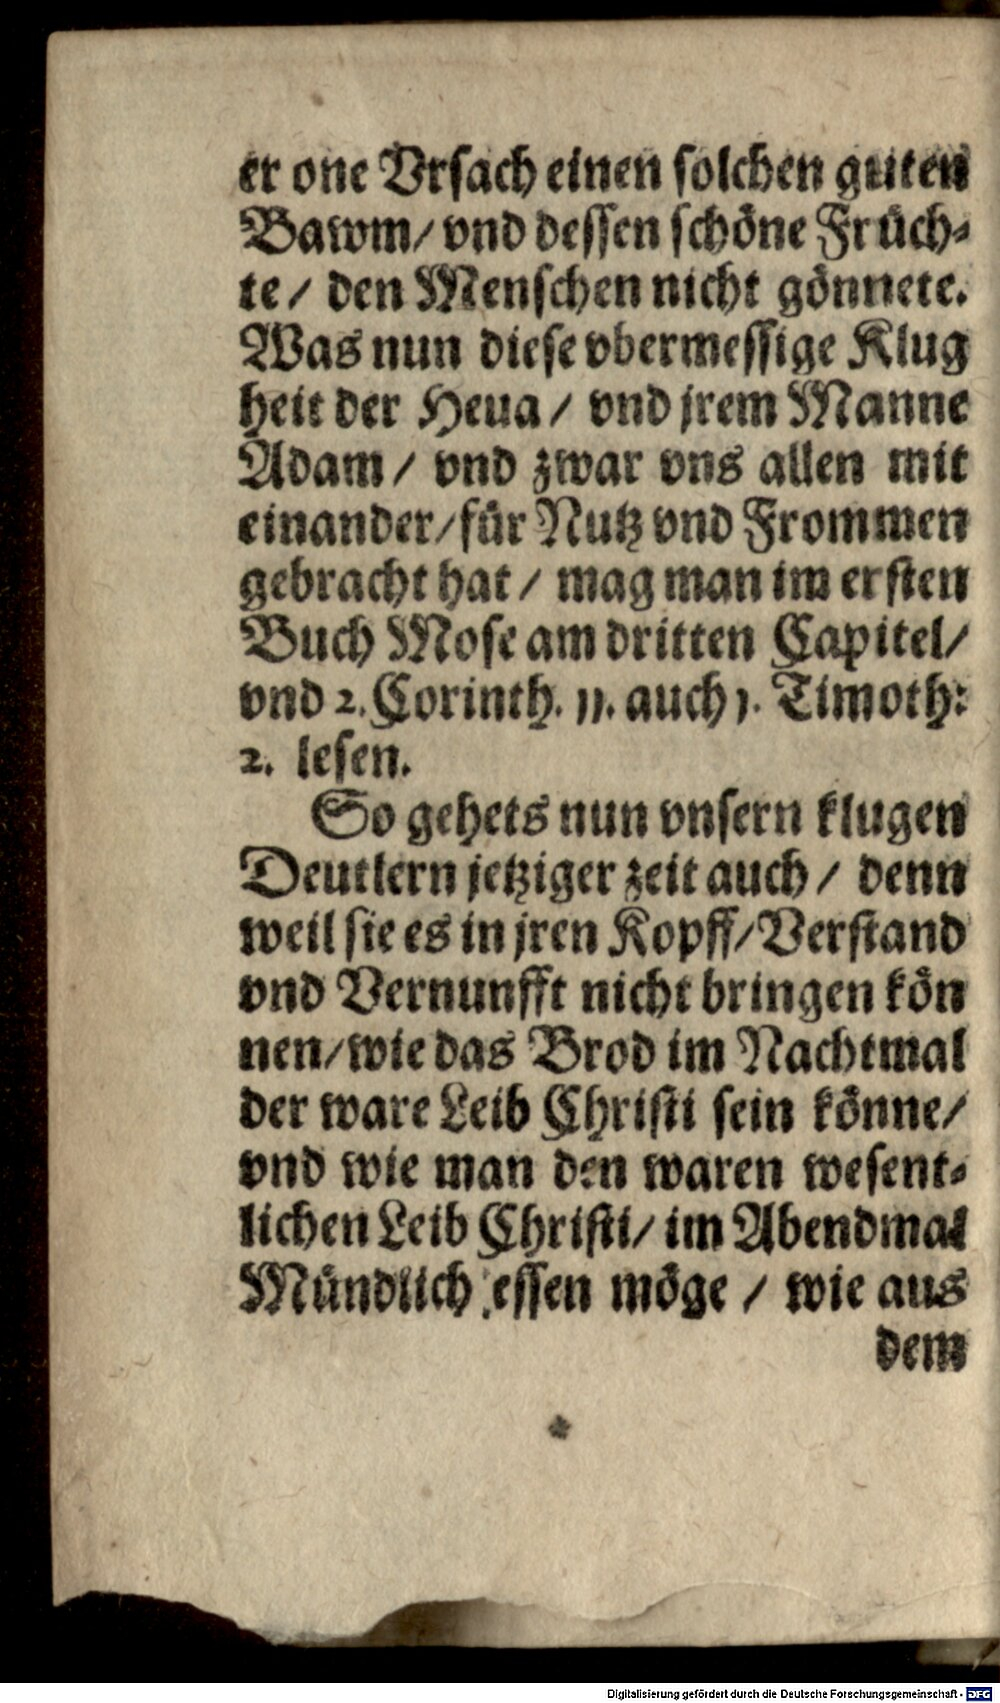 er one Vrsach einen solchen guten
Bawm/ vnd dessen schöne Früch-
te / den Menschen nicht gönnete.
Was nun diese vbermessige Klug
heit der Heua / vnd jrem Manne
Adam / vnd zwar vns allen mit
einander/für Nutz vnd Frommen
gebracht hat / mag man im ersten
Buch Mose am dritten Capitel/
vnd 2. Corinth. 11. auch 1. Timoth:
2. lesen.
So gehets nun vnsern klugen
Deutlern jetziger zeit auch / denn
weil sie es in jren Kopff/Verstand
vnd Vernunfft nicht bringen kön
nen/wie das Brod im Nachtmal
der ware Leib Christi sein könne/
vnd wie man den waren wesent-
lichen Leib Christi/ im Abendmal
Mündlich essen möge / wie aus
dem
Digitalisierung gefördert durch die Deutsche Forschungsgemeinschaft - DFG